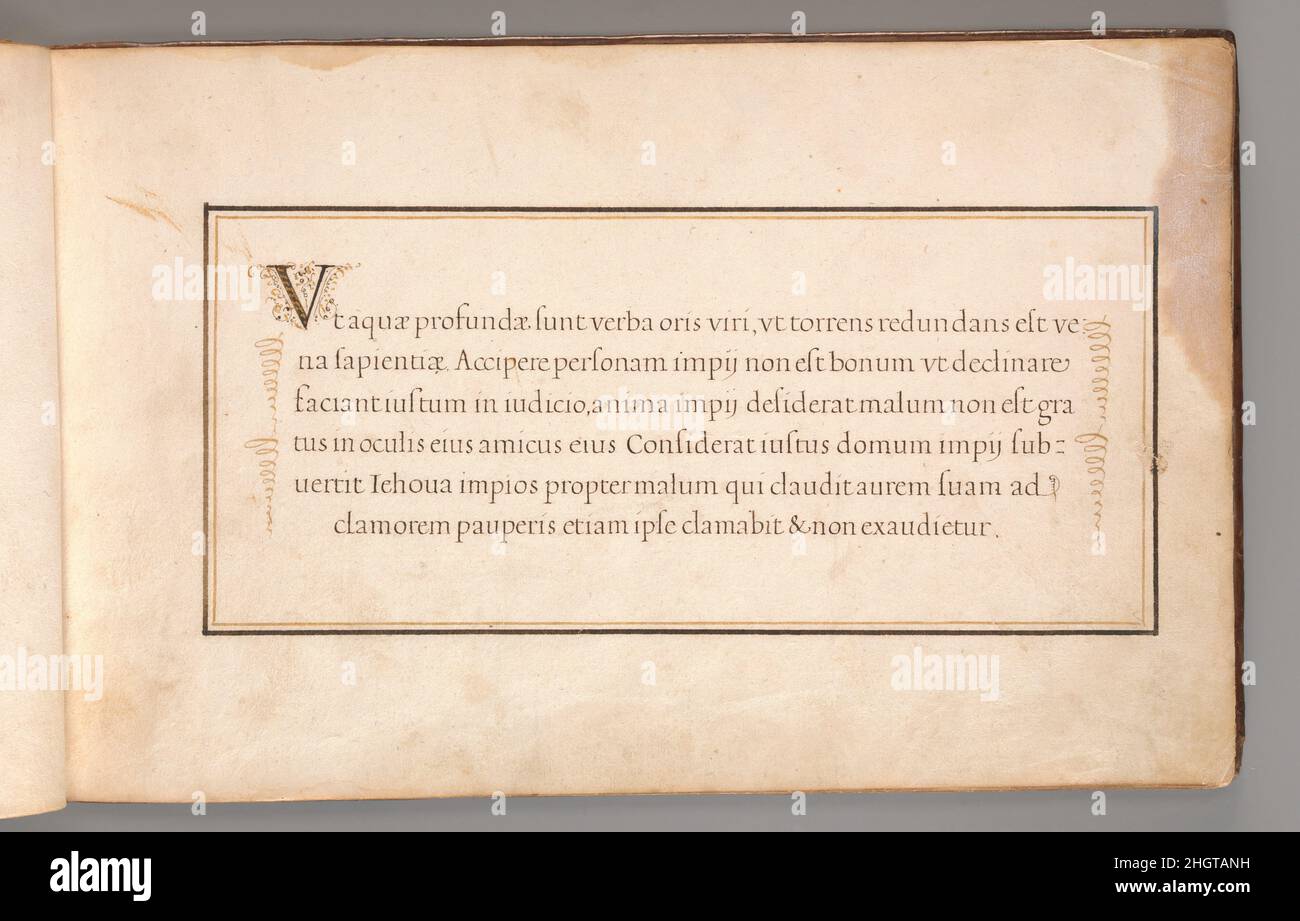 Vt aquæ profundæ ſunt verba oris viri, vt torrens redundans eſt ve-
na ſapientiæ. Accipere perſonam impij non eſt bonum vt declinare
faciant iuſtum in iudicio, anima impij deſiderat malum non eſt gra
tus in oculis eius amicus eius Conſiderat iuſtus domum impij ſub-
uertit Iehoua impios propter malum qui claudit aurem ſuam ad
clamorem pauperis etiam ipſe clamabit & non exaudietur.
alamy
alamy
Image ID: 2HGTANH
www.alamy.com